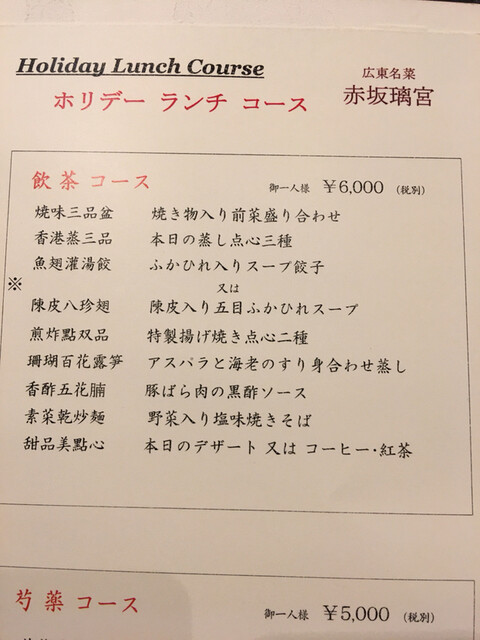 Holiday Lunch Course
ホリデー ランチ コース
広東名菜
赤坂璃宮
飲茶コース 御一人様 ¥6,000 (税別)
焼味三品盆 焼き物入り前菜盛り合わせ
香港蒸三品 本日の蒸し点心三種
魚翅灌湯餃 ふかひれ入りスープ餃子
※ 又は
陳皮八珍翅 陳皮入り五目ふかひれスープ
煎炸點双品 特製揚げ焼き点心二種
珊瑚百花露笋 アスパラと海老のすり身合わせ蒸し
香酢五花腩 豚ばら肉の黒酢ソース
素菜乾炒麺 野菜入り塩味焼きそば
甜品美點心 本日のデザート 又は コーヒー・紅茶
芍薬コース 御一人様 ¥5,000 (税別)